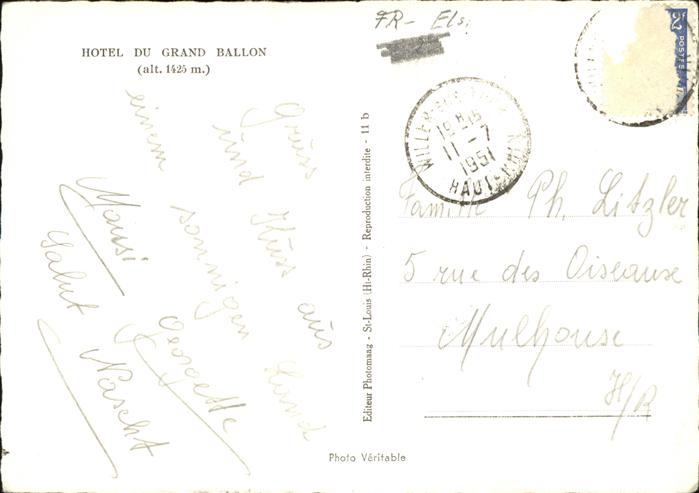 HOTEL DU GRAND BALLON
(alt. 1425 m.)
Gruss
und Kuss aus
einem sonnigen Land
Mausi
Georgette
Salut
Editeur Photomaag - St-Louis (Ht-Rhin) - Reproduction interdite - 11 b
Photo Véritable
FR- Els.
19H15
11-7
1951
HAUT-RHIN
2
POSTES
Famille Ph. Litzler
5 rue des Oiseause
Mulhouse
H/R